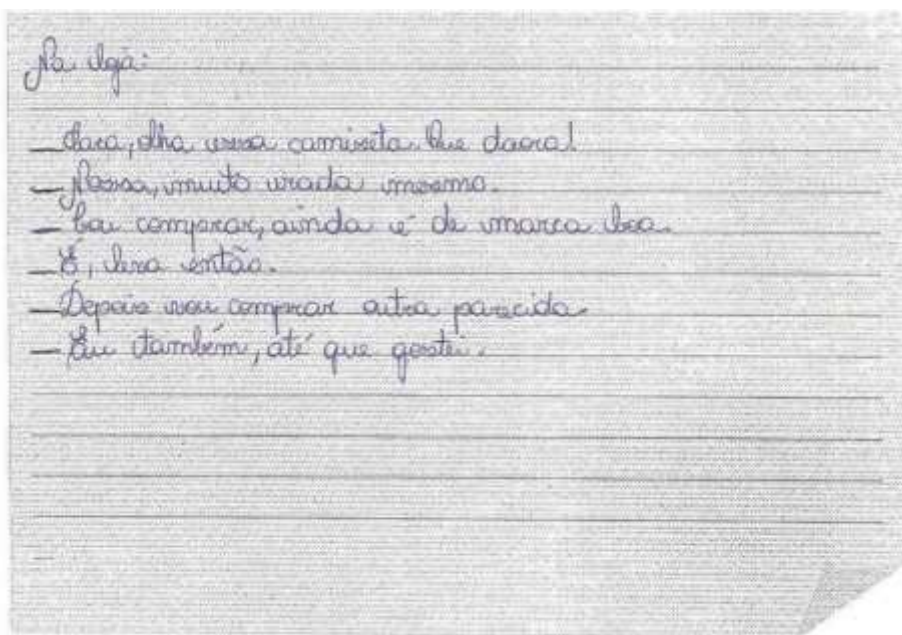 Na loja:
— Cara, olha essa camiseta. Que daora!
— Nossa, muito irada mesmo.
— Vou comprar, ainda é de marca boa.
— É, leva então.
— Depois vou comprar outra parecida.
— Eu também, até que gostei.